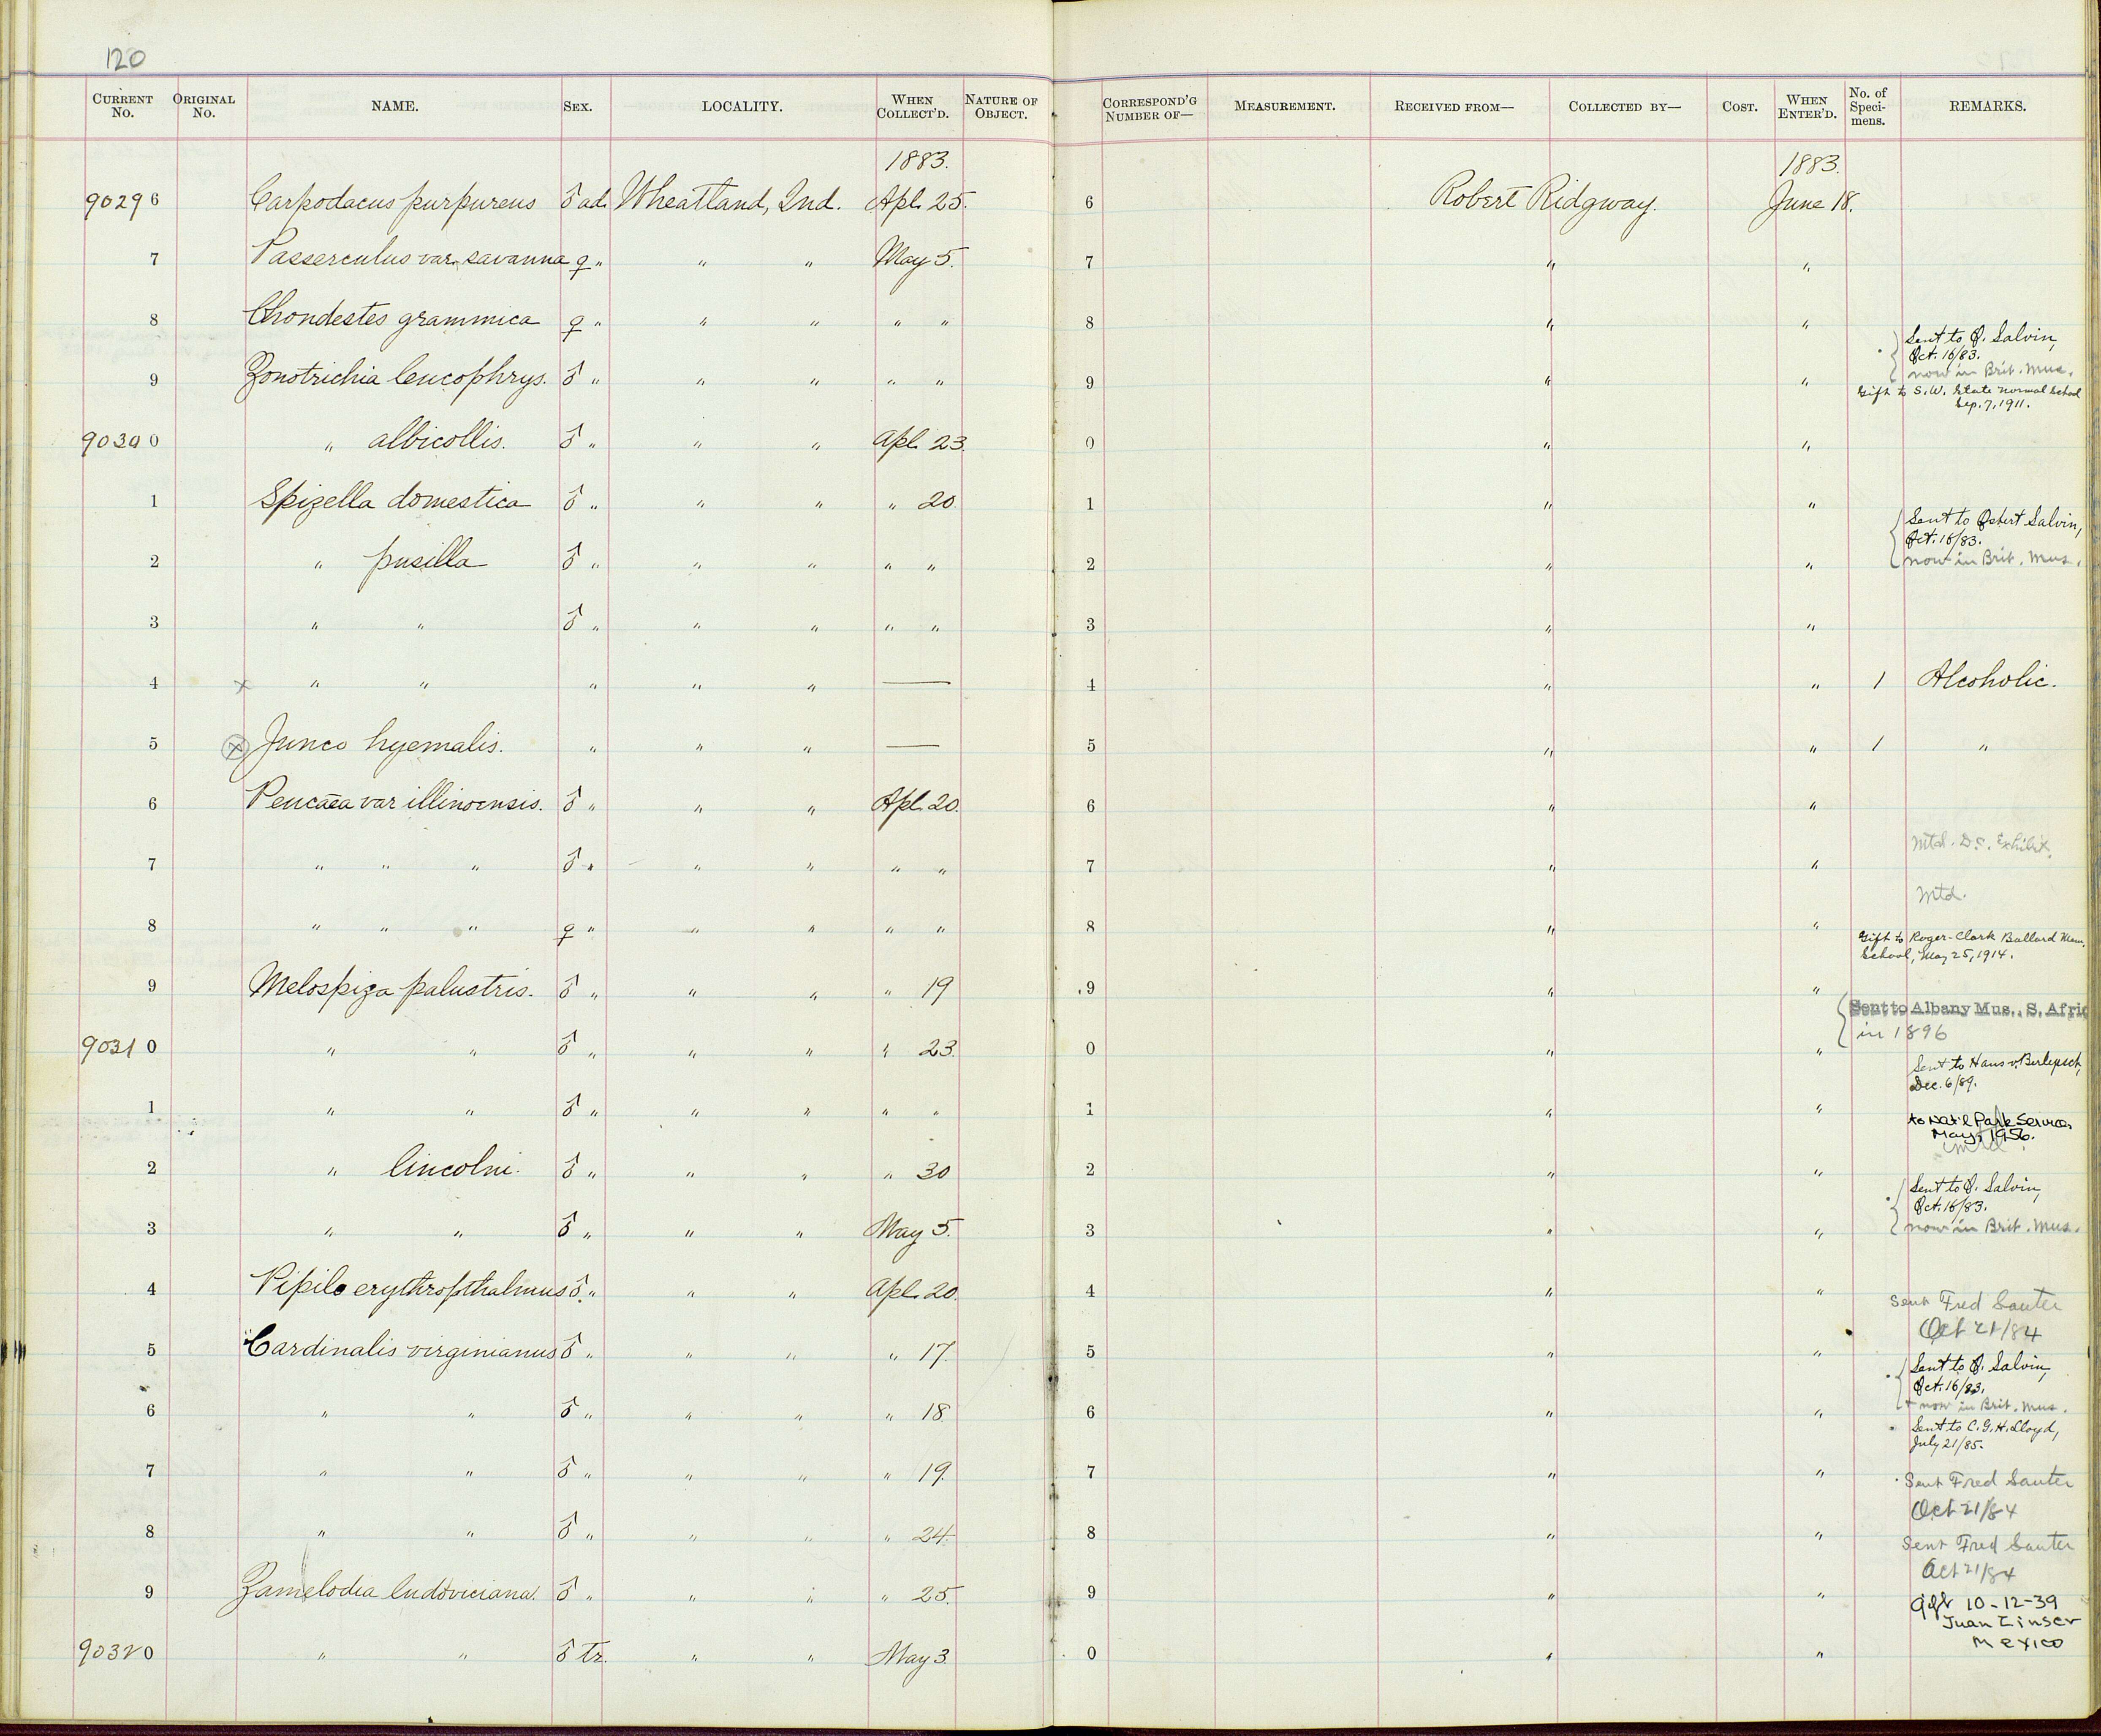 120
CURRENT No. ORIGINAL No. NAME. SEX. LOCALITY. WHEN COLLECT'D. NATURE OF OBJECT. CORRESPOND'G NUMBER OF— MEASUREMENT. RECEIVED FROM— COLLECTED BY— COST. WHEN ENTER'D. No. of Speci-mens. REMARKS.
1883. 1883.
90296 Carpodacus purpureus ♂ ad. Wheatland, Ind. Apl. 25. 6 Robert Ridgway. June 18.
7 Passerculus var. savanna ♀ " " " May 5. 7 " "
8 Chondestes grammica ♀ " " " " " 8 " "
Sent to O. Salvin,
Oct. 16/83.
now in Brit. Mus.
9 Zonotrichia leucophrys. ♂ " " " " " 9 " "
Gift to S.W. State Normal School
Sep. 7, 1911.
90300 " albicollis. ♂ " " " Apl. 23. 0 " "
1 Spizella domestica ♂ " " " " 20. 1 " "
Sent to Osbert Salvin,
Oct. 16/83.
now in Brit. Mus.
2 " pusilla ♂ " " " " " 2 " "
3 " " ♂ " " " " " 3 " "
4 x " " " " " — 4 " " 1 Alcoholic.
5 x Junco hyemalis. " " " — 5 " " 1 "
6 Peucaea var illinoensis. ♂ " " " Apl. 20. 6 " "
Mtd. D.C. Exhibit.
7 " " " ♂ " " " " " 7 " "
Mtd.
8 " " " ♀ " " " " " 8 " "
Gift to Roger-Clark Ballard Mem.
School, May 25, 1914.
9 Melospiza palustris. ♂ " " " " 19 9 " "
Sent to Albany Mus., S. Afric
in 1896
90310 " " ♂ " " " " 23. 0 " "
Sent to Hans v. Berlepsch,
Dec. 6/89.
1 " " ♂ " " " " " 1 " "
to Nat'l Park Service
May, 1956.
Mtd.
2 " lincolni. ♂ " " " " 30 2 " "
Sent to O. Salvin,
Oct. 16/83.
now in Brit. Mus.
3 " " ♂ " " " May 5. 3 " "
4 Pipilo erythropthalmus ♂ " " " Apl. 20. 4 " "
Sent Fred Sauter
Oct 21/84
5 Cardinalis virginianus ♂ " " " " 17. 5 " "
Sent to O. Salvin,
Oct. 16/83.
+ now in Brit. Mus.
6 " " ♂ " " " " 18. 6 " "
Sent to C. G. H. Lloyd,
July 21/85.
7 " " ♂ " " " " 19. 7 " "
Sent Fred Sauter
Oct 21/84
8 " " ♂ " " " " 24. 8 " "
Sent Fred Sauter
Oct 21/84
9 Zamelodia ludoviciana. ♂ " " " " 25. 9 " "
Gift 10-12-39
Juan Zinser
Mexico
90320 " " ♂ tr. " " May 3. 0 " "